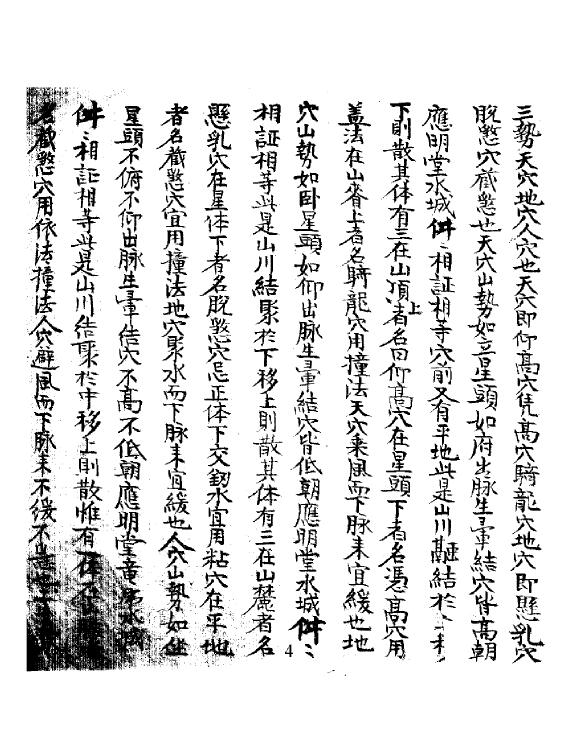 三勢天穴地穴人穴也天穴即仰髙穴凭髙穴騎龍穴地穴即懸乳穴
脱煞穴藏煞也天穴山勢如立星頭如府出脉生暈結穴皆髙朝
應明堂水城件〻相証相等穴前又有平地此是山川融結於上移
下則散其体有三在山頂上者名曰仰髙穴在星頭下者名憑髙穴用
盖法在山脊上者名騎龍穴用撞法天穴乗風而下脉来宜緩也地
穴山勢如卧星頭如仰出脉生暈結穴皆低朝應明堂水城件〻
相証相等此是山川結聚於下移上則散其体有三在山麓者名
懸乳穴在星体下者名脱煞穴忌正体下交劔水宜用粘穴在平地
者名藏煞穴宜用撞法地穴聚水而下脉来宜緩也人穴山勢如坐
星頭不俯不仰出脉生暈結穴不髙不低朝應明堂竜虎水城
件〻相証相等此是山川結聚於中移上則散惟有一体
名藏煞穴用依法撞法人穴避風而下脉来不緩不
4